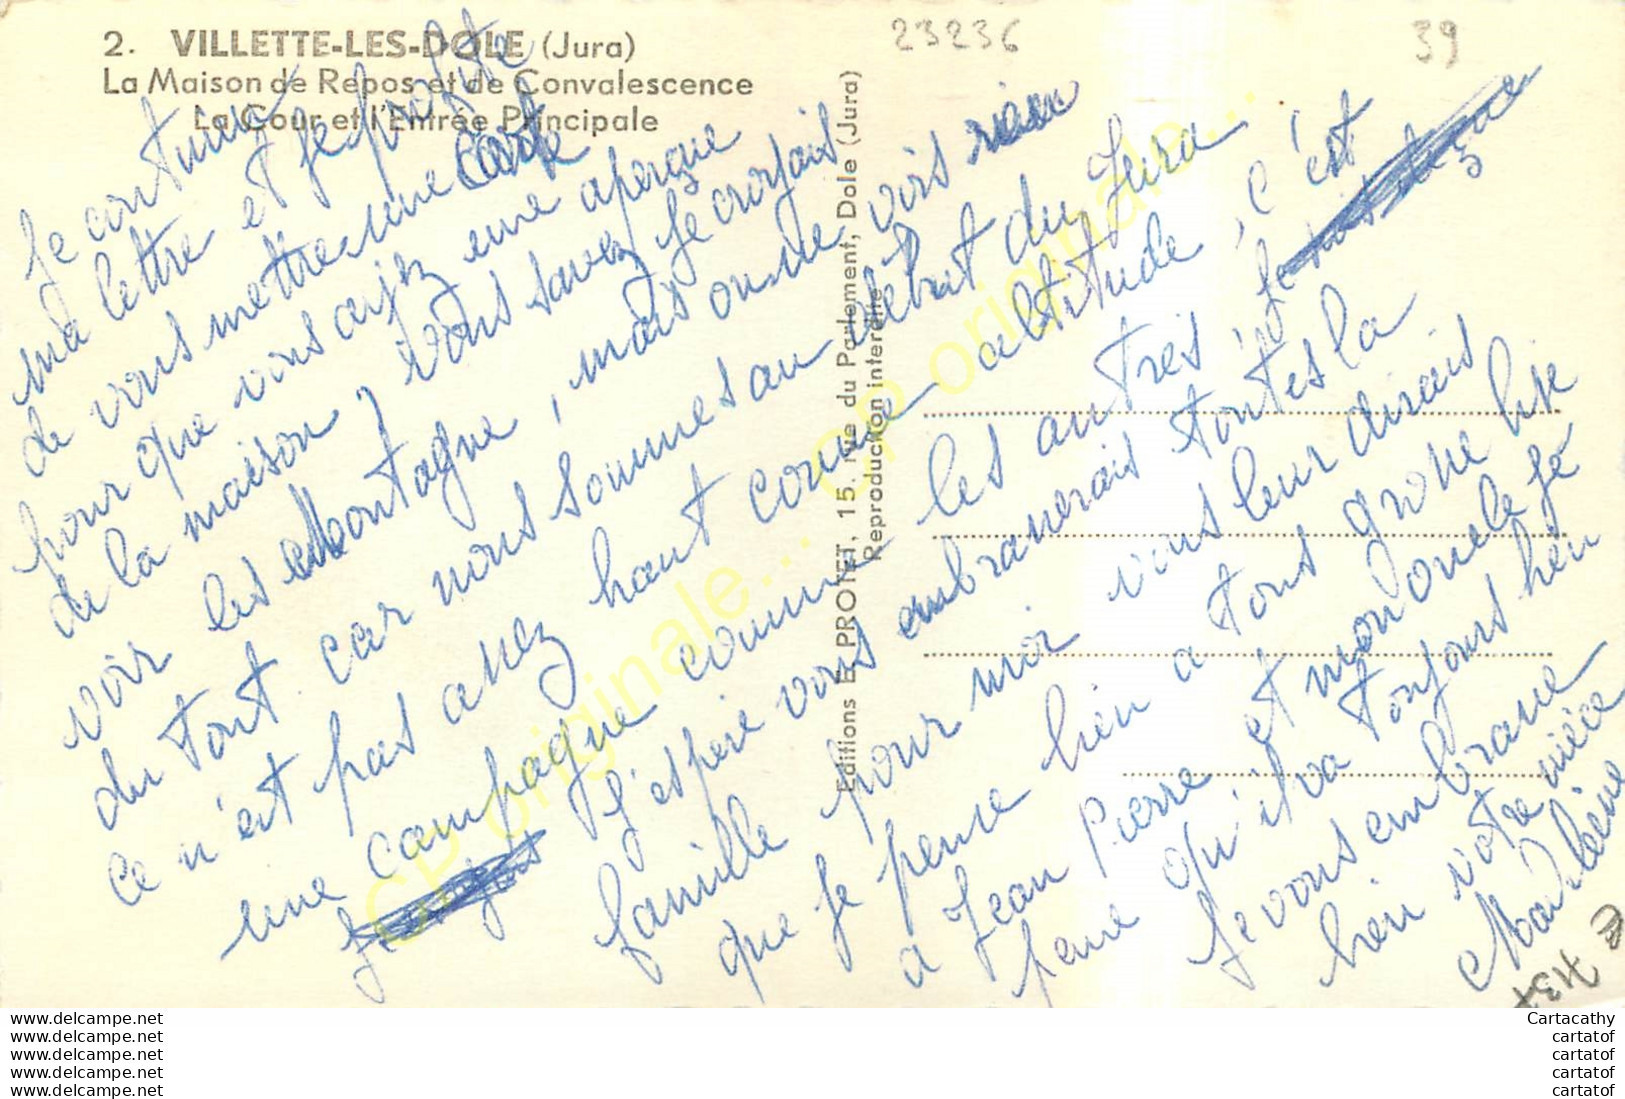 2. VILLETTE-LES-DOLE (Jura)
La Maison de Repos et de Convalescence
La Cour et l'Entrée Principale
23236
39
Je continue
ma lettre et je profite
de vous mettre une carte
pour que vous aisiez une aperçue
de la maison, vous savez je croyais
voir les Montagne, mais on ne vois rien
du tout car nous sommes au début du Jura
ce n'est pas assez haut comme altitude, c'est
une campagne comme les autres
J'espère vous embrasserais toutes la
famille pour moi vous leur dirais
que je pense bien a tous grosse bise
a Jean Pierre et mon oncle je
pense qu'il va toujours bien
Je vous embrasse
bien votre nièce
Marlène
Editions E. PROTET, 15, Rue du Parlement, Dole (Jura)
Reproduction interdite
CP originale... CP originale... CP originale...
www.delcampe.net
www.delcampe.net
www.delcampe.net
www.delcampe.net
www.delcampe.net
Cartacathy
cartatof
cartatof
cartatof
cartatof